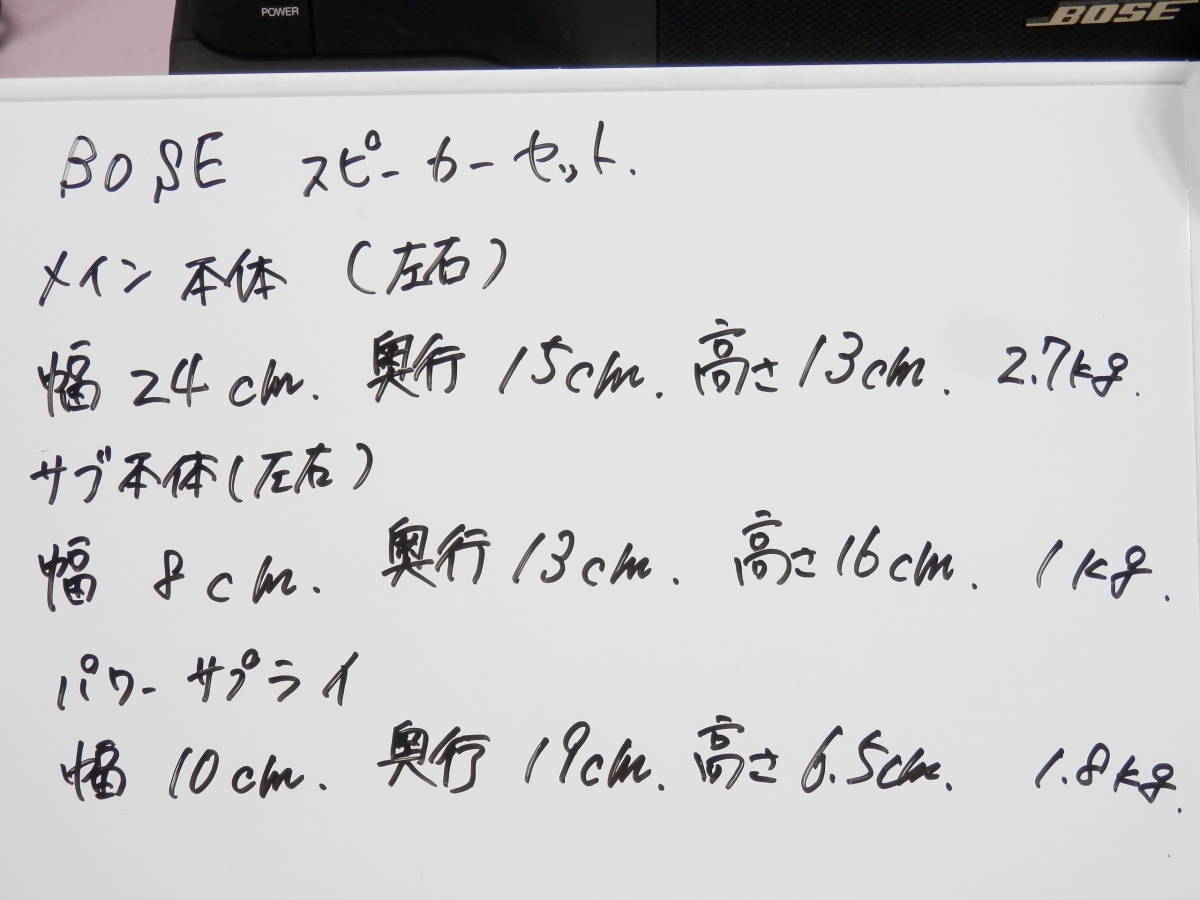 POWER
BOSE
BOSE スピーカーセット.
メイン 本体 (左右)
幅 24cm. 奥行 15cm. 高さ 13cm. 2.7kg.
サブ本体(左右)
幅 8cm. 奥行 13cm. 高さ16cm. 1kg.
パワーサプライ
幅 10cm. 奥行 19cm. 高さ 6.5cm. 1.8kg.